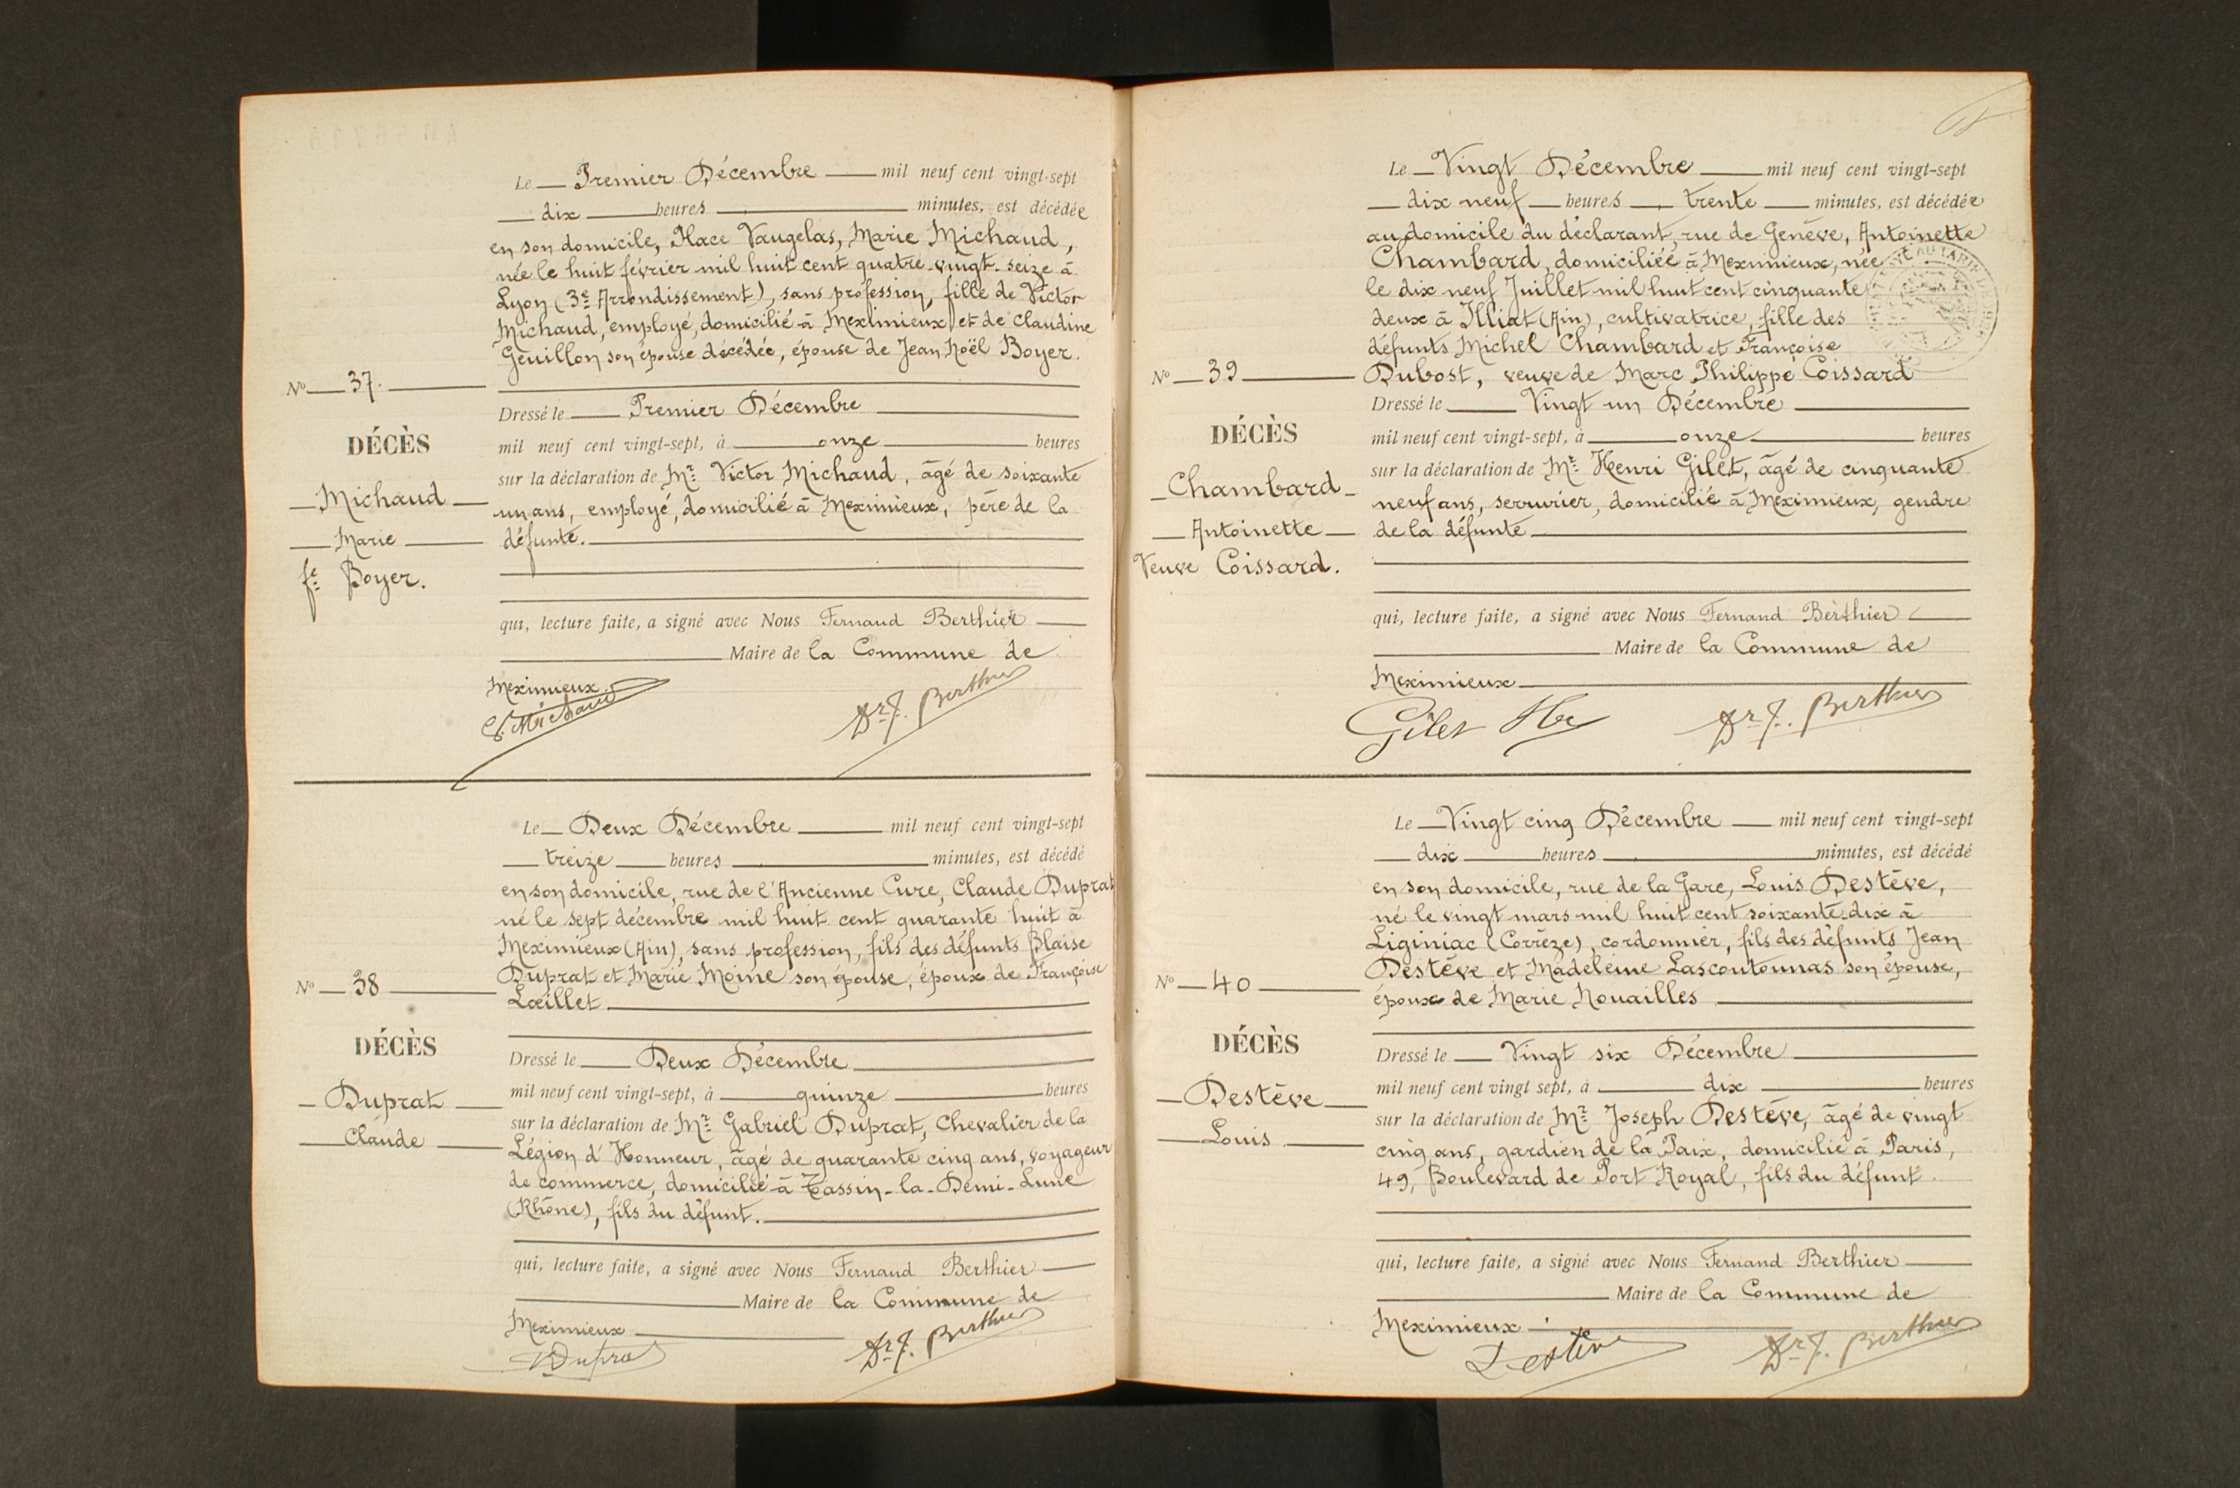 Le Premier Décembre mil neuf cent vingt-sept
dix heures minutes, est décédée
en son domicile, Place Vaugelas, Marie Michaud,
née le huit février mil huit cent quatre-vingt-seize à
Lyon (3e Arrondissement), sans profession, fille de Victor
Michaud, employé, domicilié à Meximieux et de Claudine
Genillon son épouse décédée, épouse de Jean Noël Boyer.
No 37.
DÉCÈS
Michaud
Marie
fe Boyer.
Dressé le Premier Décembre
mil neuf cent vingt-sept, à onze heures
sur la déclaration de Mr Victor Michaud, âgé de soixante
un ans, employé, domicilié à Meximieux, père de la
défunte.
qui, lecture faite, a signé avec Nous Fernand Berthier
Maire de la Commune de
Meximieux
V. Michaud Dr F. Berthier
Le Deux Décembre mil neuf cent vingt-sept
treize heures minutes, est décédé
en son domicile, rue de l'Ancienne Cure, Claude Duprat
né le sept décembre mil huit cent quarante huit à
Meximieux (Ain), sans profession, fils des défunts Blaise
Duprat et Marie Moine son épouse, époux de Françoise
Lœillet
No 38
DÉCÈS
Duprat
Claude
Dressé le Deux Décembre
mil neuf cent vingt-sept, à quinze heures
sur la déclaration de Mr Gabriel Duprat, Chevalier de la
Légion d'Honneur, âgé de quarante cinq ans, voyageur
de commerce, domicilié à Tassin-la-Demi-Lune
(Rhône), fils du défunt.
qui, lecture faite, a signé avec Nous Fernand Berthier
Maire de la Commune de
Meximieux
Duprat Dr F. Berthier
Le Vingt Décembre mil neuf cent vingt-sept
dix neuf heures trente minutes, est décédée
au domicile du déclarant, rue de Genève, Antoinette
Chambard, domiciliée à Meximieux, née
le dix neuf Juillet mil huit cent cinquante
deux à Illiat (Ain), cultivatrice, fille des
défunts Michel Chambard et Françoise
Dubost, veuve de Marc Philippe Coissard
No 39
DÉCÈS
Chambard
Antoinette
Veuve Coissard.
Dressé le Vingt un Décembre
mil neuf cent vingt-sept, à onze heures
sur la déclaration de Mr Henri Gilet, âgé de cinquante
neuf ans, serrurier, domicilié à Meximieux, gendre
de la défunte
qui, lecture faite, a signé avec Nous Fernand Berthier
Maire de la Commune de
Meximieux
Gilet Dr F. Berthier
Le Vingt cinq Décembre mil neuf cent vingt-sept
dix heures minutes, est décédé
en son domicile, rue de la Gare, Louis Destève,
né le vingt mars mil huit cent soixante-dix à
Liginiac (Corrèze), cordonnier, fils des défunts Jean
Destève et Madeleine Lascoutounas son épouse,
époux de Marie Nouailles
No 40
DÉCÈS
Destève
Louis
Dressé le Vingt six Décembre
mil neuf cent vingt sept, à dix heures
sur la déclaration de Mr Joseph Destève, âgé de vingt
cinq ans, gardien de la Paix, domicilié à Paris,
49, Boulevard de Port Royal, fils du défunt.
qui, lecture faite, a signé avec Nous Fernand Berthier
Maire de la Commune de
Meximieux
Destève Dr F. Berthier